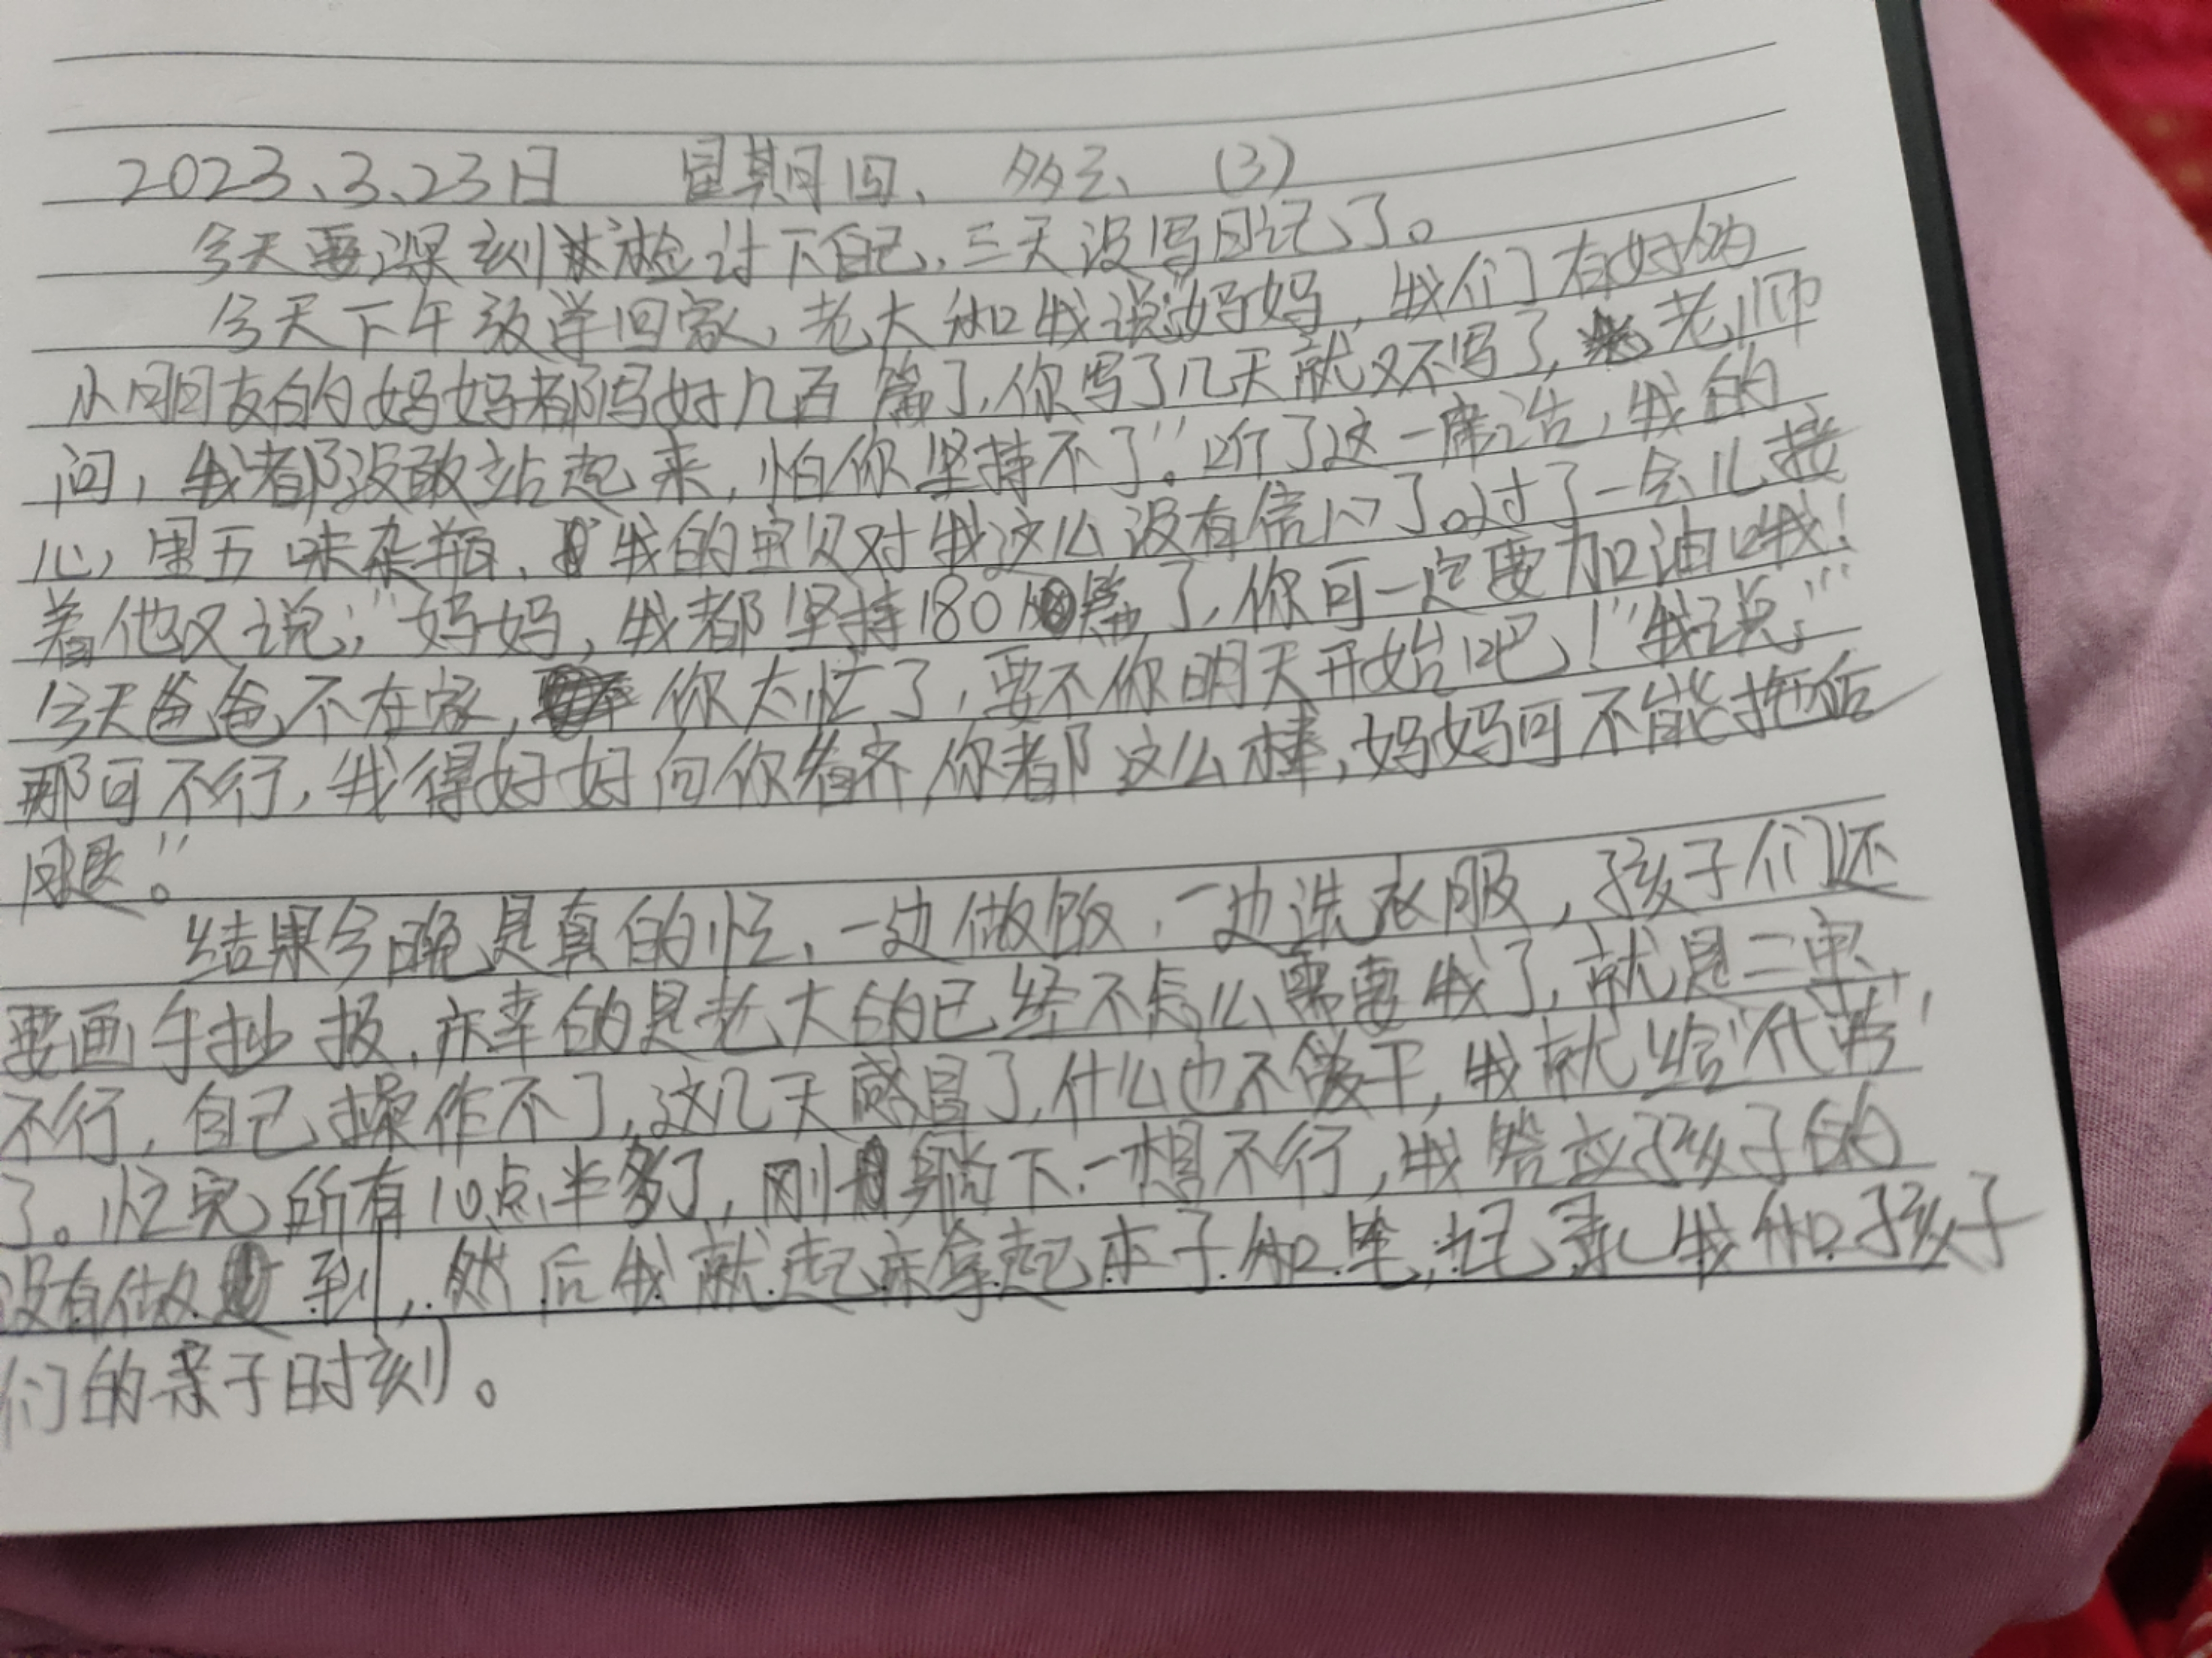 2023、3、23日 星期四、 多云、 (3)
今天要深刻检讨下自己，三天没写日记了。
今天下午放学回家，老大和我说“妈妈，我们有好的
小同同友的妈妈都写好几百篇了，你写了几天就又不写了，老师
问，我都没敢站起来，怕你坚持不了”。听了这一席话，我的
心里五味杂瓶，我的宝贝对我这么没有信心了。过了一会儿接
着他又说；“妈妈，我都坚持180篇了，你可一定要加油哦！
今天爸爸不在家，你太忙了，要不你明天开始吧！”我说“
那可不行，我得好好向你看齐，你都这么棒，妈妈可不能拖后
腿。”
结果今晚是真的忙，一边做饭，一边洗衣服，孩子们还
要画手抄报，庆幸的是老大的已经不怎么需要我了，就是二宝
不行，自己操作不了，这几天感冒了，什么也不干，我就给“代劳”
了。忙完所有10点半多了，刚躺下一想不行，我答应孩子的
没有做到，然后我就起床拿起本子和笔，记录我和孩子
们的亲子时刻。